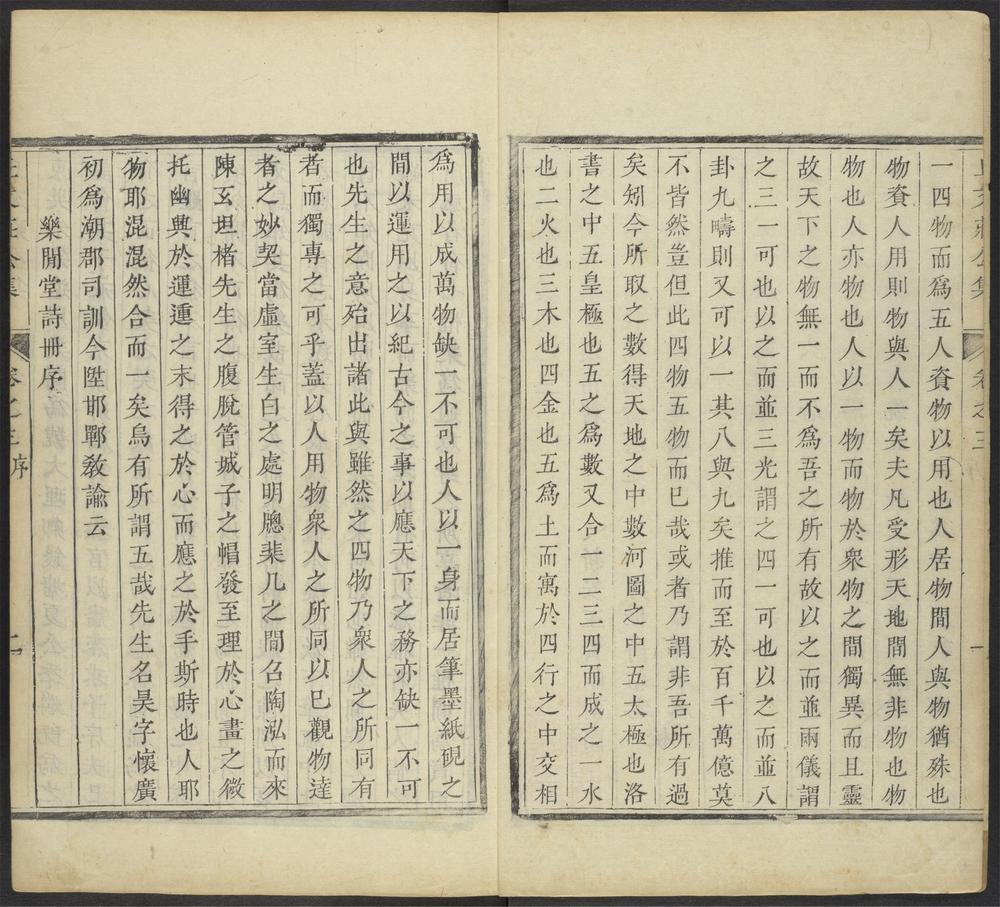 丘文莊公集 卷之三 一
一四物而爲五人資物以用也人居物間人與物猶殊也
物資人用則物與人一矣夫凡受形天地間無非物也物
物也人亦物也人以一物而物於衆物之間獨異而且靈
故天下之物無一而不爲吾之所有故以之而並兩儀謂
之三一可也以之而並三光謂之四一可也以之而並八
卦九疇則又可以一其八與九矣推而至於百千萬億莫
不皆然豈但此四物五物而已哉或者乃謂非吾所有過
矣矧今所取之數得天地之中數河圖之中五太極也洛
書之中五皇極也五之爲數又合一二三四而成之一水
也二火也三木也四金也五爲土而寓於四行之中交相
爲用以成萬物缺一不可也人以一身而居筆墨紙硯之
間以運用之以紀古今之事以應天下之務亦缺一不可
也先生之意殆出諸此與雖然之四物乃衆人之所同有
者而獨專之可乎蓋以人用物衆人之所同以已觀物達
者之妙契當虛室生白之處明牕棐几之間召陶泓而來
陳玄坦楮先生之腹脫管城子之帽發至理於心畫之微
托幽興於運運之末得之於心而應之於手斯時也人耶
物耶混混然合而一矣烏有所謂五哉先生名昊字懷廣
初爲潮郡司訓今陞邯鄲敎諭云
樂閒堂詩冊序
卷之三 序 二